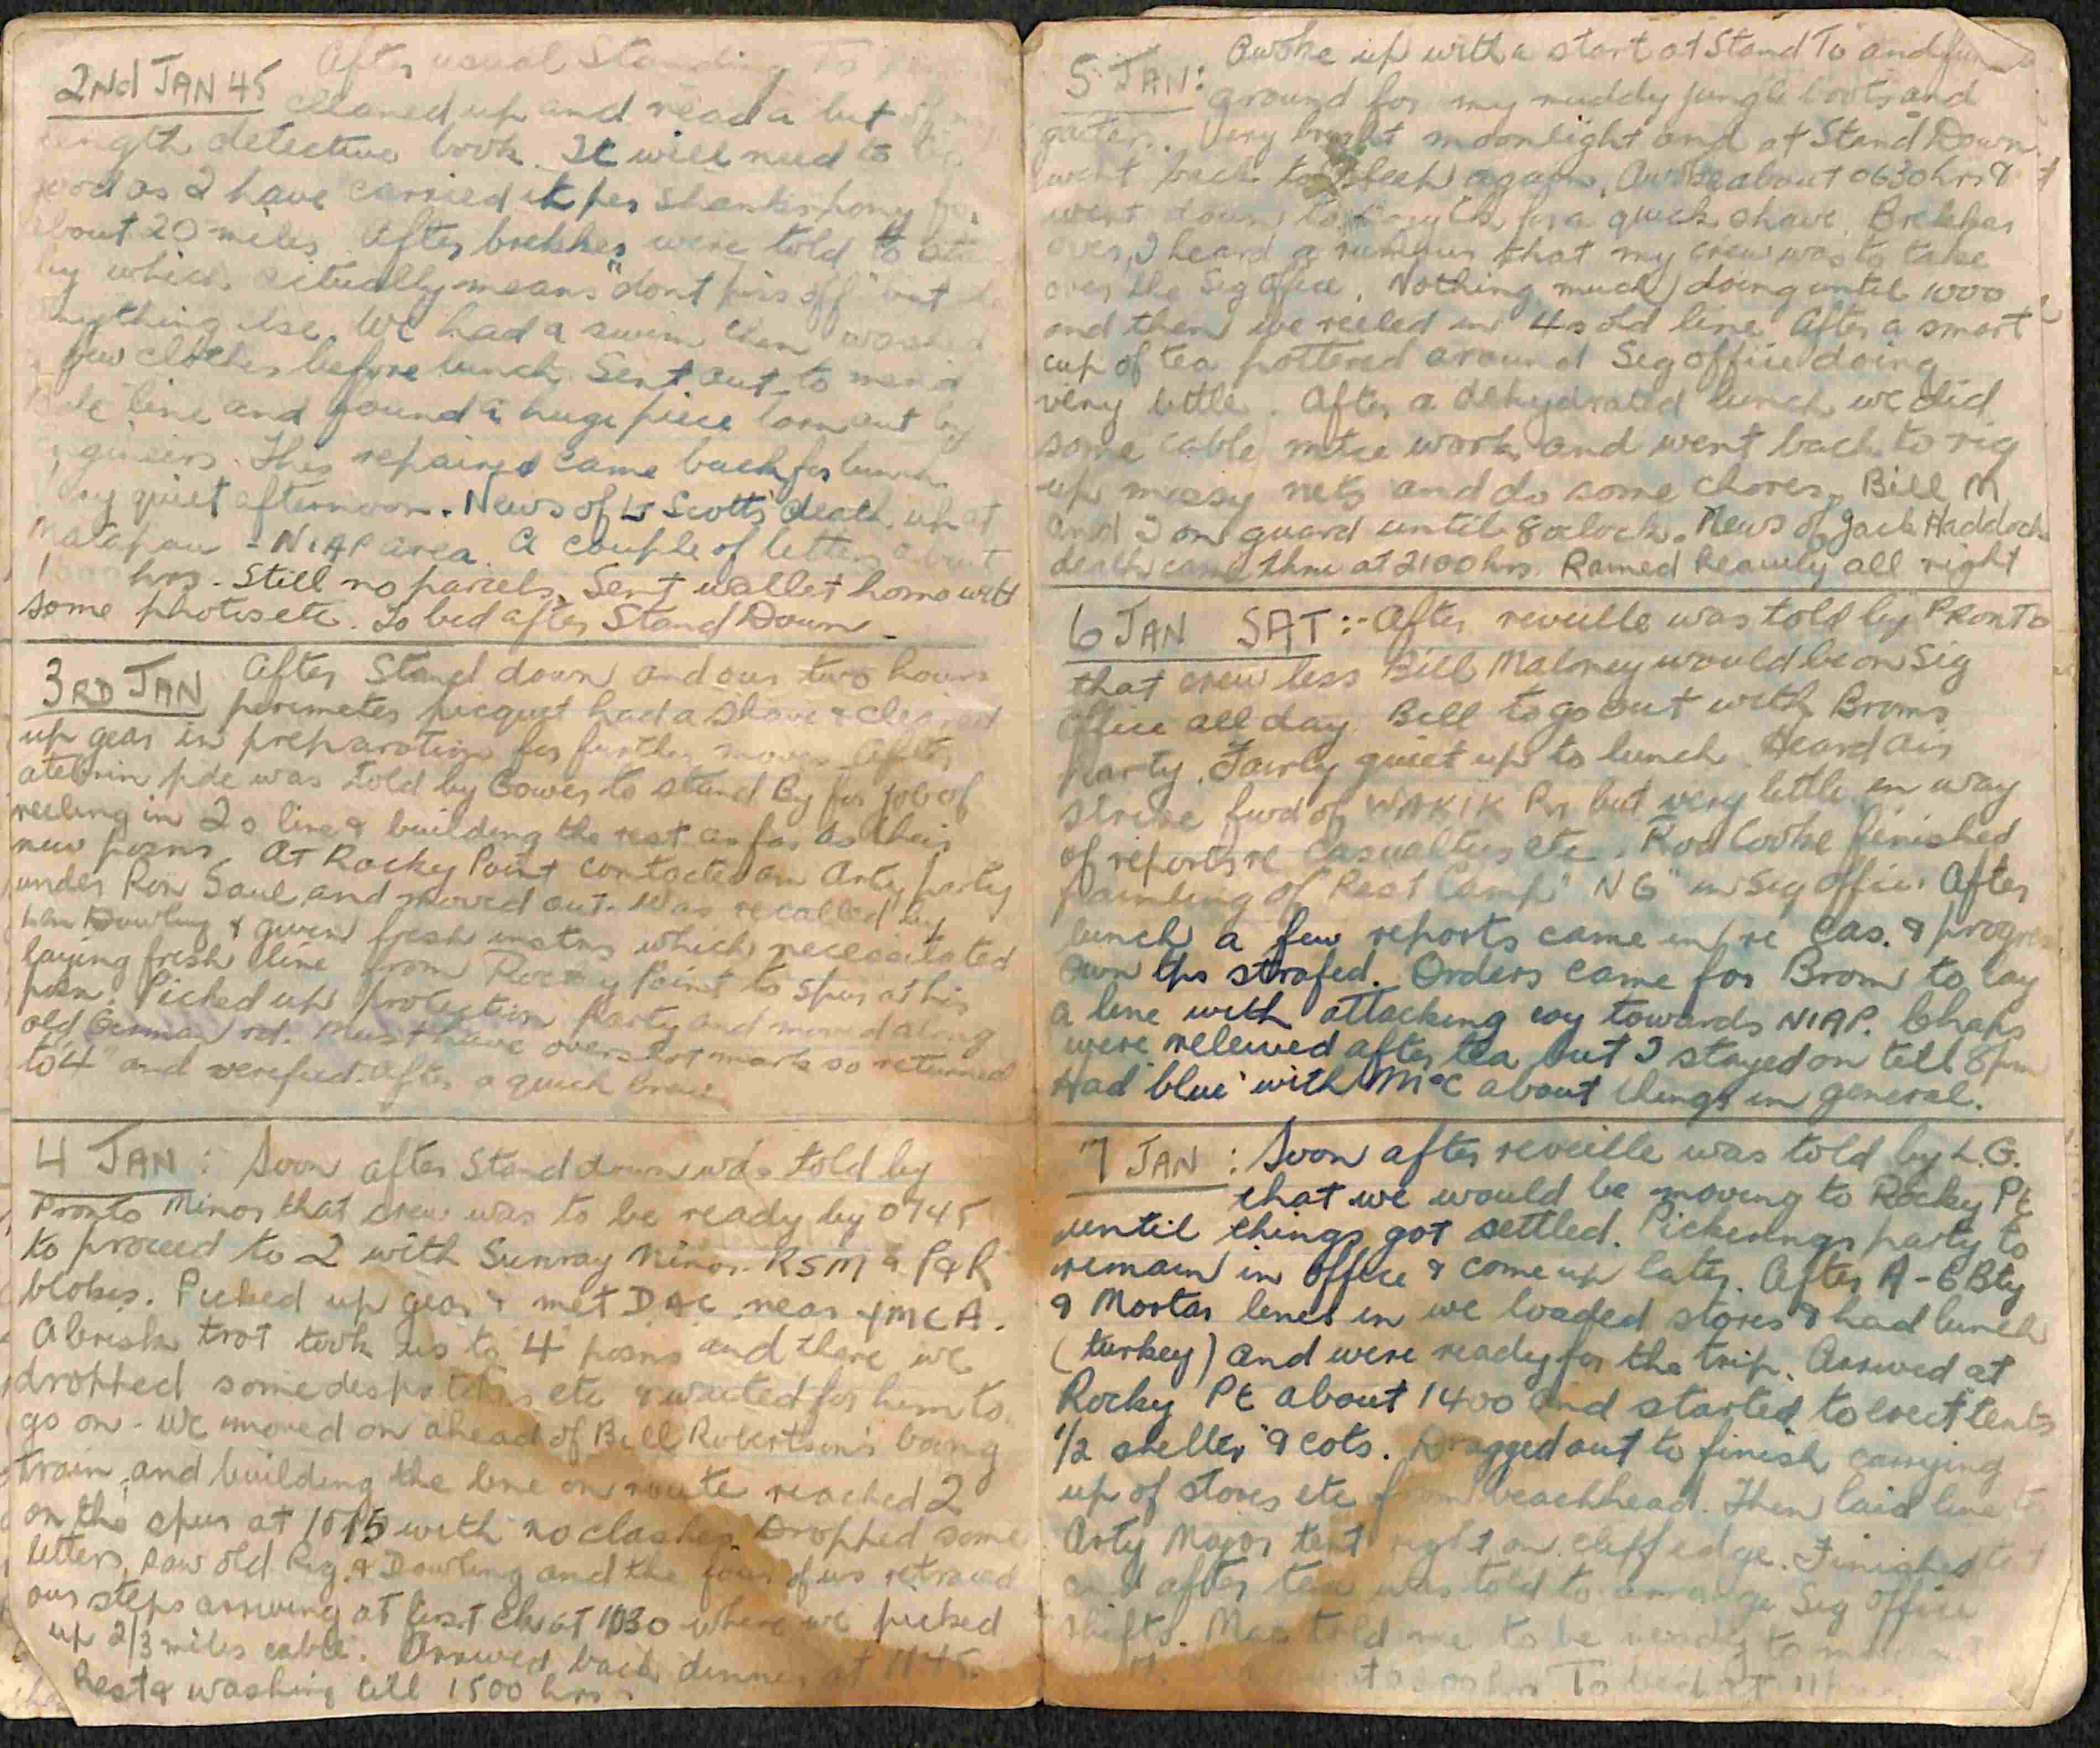 After usual Standing To
2Nd JAN 45 cleaned up and read a bit of
length detective book. It will need to be
good as I have carried it per shanks pony for
about 20 miles. After brekker were told to
by which actually means "dont piss off" but
anything else. We had a swim then washed
few clothes before lunch. Sent out to mend
line and found a huge piece torn out by
engineers. This repaired came back for lunch.
Very quiet afternoon. News of Lt Scotts death up at
Matapau - NIAP area. A couple of letters about
hrs. Still no parcels. Sent wallet home with
some photos etc. To bed after Stand Down -
3RD JAN After Stand down and our two hours
perimeter picquet had a shave & cleaned
up gear in preparation for further moves. After
atebrin pde was told by Gower to stand By for job of
reeling in 2s line & building the rest as far as their
new posns. At Rocky Point contacted an Arty party
under Ron Saul and moved out. Was recalled by
Dowling & given fresh instns which necessitated
laying fresh line from Rocky Point to spur at his
posn. Picked up protection party and moved along
old German rd. Must have overshot mark so returned
to "4" and verified. After a quick brew
4 JAN : Soon after Stand down was told by
Pronto Minor that crew was to be ready by 0745
to proceed to 2 with Sunray Minor RSM & P&R
blokes. Picked up gear & met D.A.C. near YMCA.
A brisk trot took us to 4 posns and there we
dropped some despatches etc & waited for him to
go on - We moved on ahead of Bill Robertson's boong
train, and building the line on route reached 2
on the spur at 1015 with no clashes. Dropped some
letters, saw old Reg. & Dowling and the four of us retraced
our steps arriving at first ck at 1030 where we picked
up 2/3 miles cable. Arrived back dinner at 1145.
Rest & washing till 1500 hrs
5 JAN: Awoke up with a start at Stand To and
ground for my muddy jungle boots and
gaiters. Very bright moonlight and at Stand Down
went back to sleep again. Awoke about 0630hrs &
went down to ck for a quick shave. Brekker
over, I heard a rumour that my crew was to take
over the Sig Office. Nothing much doing until 1000
and then we reeled in 4s old line. After a smart
cup of tea pottered around Sig office doing
very little. After a dehydrated lunch we did
some cable mtce work and went back to rig
up mossy nets and do some chores. Bill M
and I on guard until 8 oclock. News of Jack Haddock
death came thru at 2100 hrs. Rained heavily all night
6 JAN SAT :- After reveille was told by PRONTO
that crew less Bill Maloney would be on Sig
Office all day. Bill to go out with Broms
party. Fairly quiet up to lunch. Heard air
strike fwd of WAKIK Rr but very little in way
of reports re Casualties etc. Rod Cooke finished
painting of "Rest Camp" "NG" in Sig office. After
lunch a few reports came in re Cas. & progress
Own tps strafed. Orders came for Brom to lay
a line with attacking coy towards NIAP. Chaps
were releived after tea but I stayed on till 8pm
Had "blue" with McC about things in general.
7 JAN : Soon after reveille was told by L.G.
that we would be moving to Rocky Pt
until things got settled. Pickerings party to
remain in office & come up later. After A - E Bty
& Mortar lines in we loaded stores & had lunch
(turkey) and were ready for the trip. Arrived at
Rocky Pt about 1400 and started to erect tents
"1/2 shelter" & cots. Dragged out to finish carrying
up of stores etc from beachhead. Then laid line to
Arty Major tent right on cliff edge. Finished
and after tea was told to arrange Sig office
shifts. Mac told me to be ready to
To bed at 11